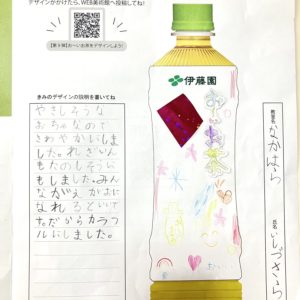 デザインがかけたら、WEB美術館へ投稿してね!
【第9弾】お〜いお茶をデザインしよう!
きみのデザインの説明を書いてね
やさしそうな
おちゃなので
さわやかにしま
した。れいざいん
もたのしそうに
もしました。みん
ながえがおに
なれるといいで
す。だからカラフ
ルにしました。
伊藤園
お〜いお茶
おいしい
教室名
なかはら
氏名
いしづきさら